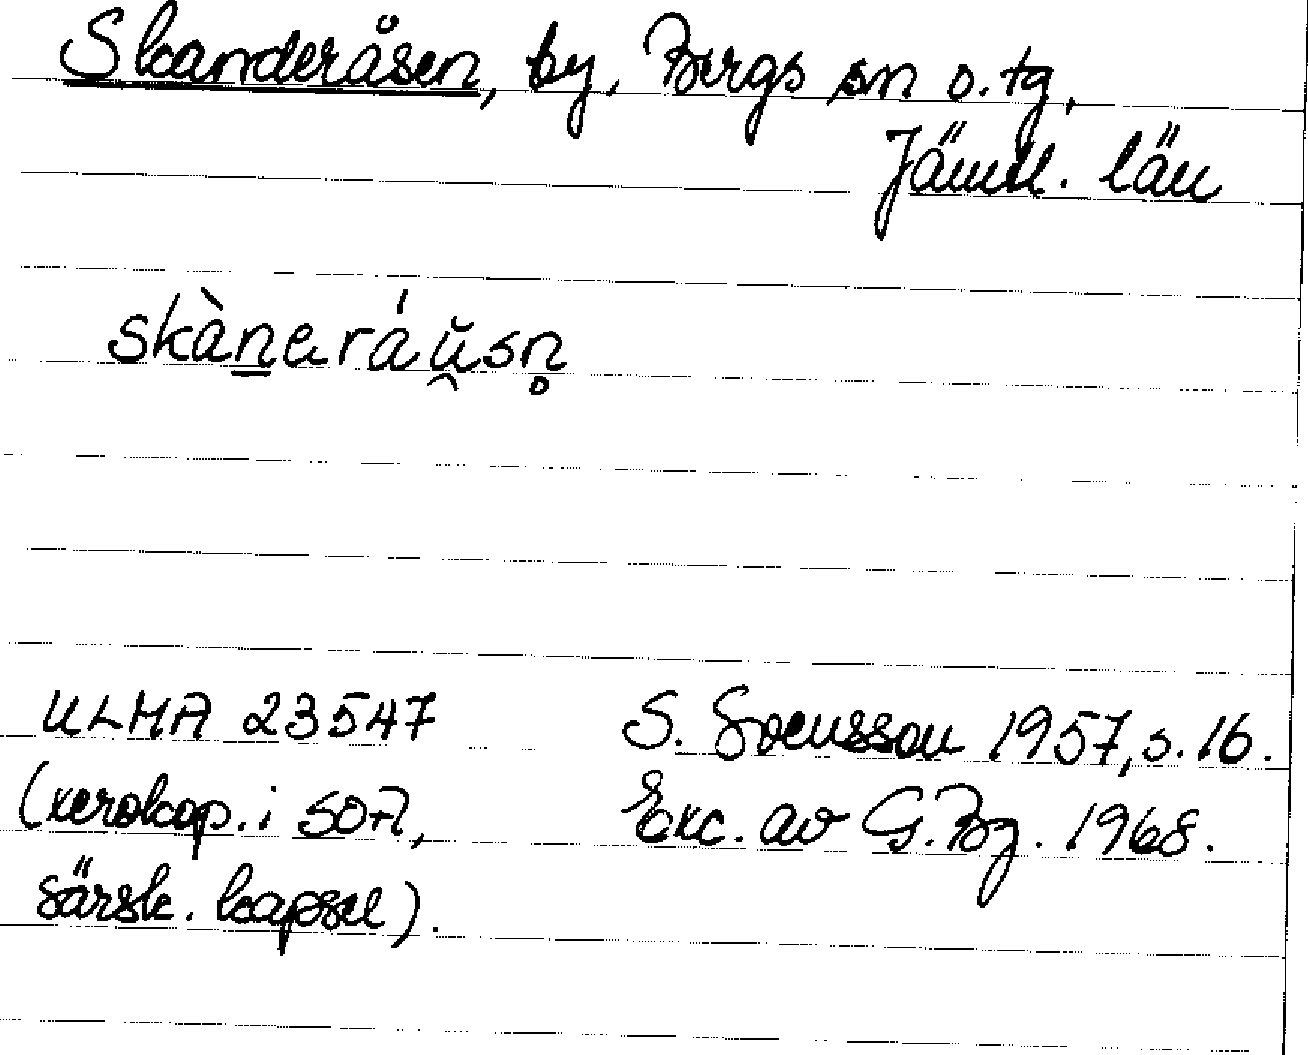 Skanderåsen, by, Bergs sn o. tg,
Jämtl. län
skàn̲eráŭ̯sn̥
ULMA 23547
(xerokop. i SOA,
särsk. kapsel).
S. Svensson 1957, s. 16.
Exc. av G. Bg. 1968.